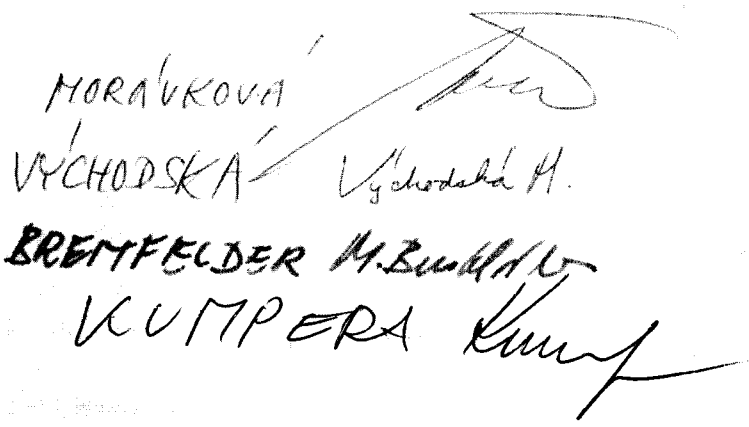 MORÁVKOVÁ
VÝCHODSKÁ Východská M.
BREMFELDER M.
KUMPERA